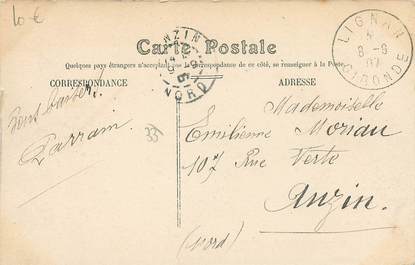 10 €
Carte Postale
Quelques pays étrangers n'acceptent pas de Correspondance de ce côté, se renseigner à la Poste.
CORRESPONDANCE
ADRESSE
ANZIN
NORD
LIGNAN
8-9
07
GIRONDE
Mademoiselle
Emilienne Moriau
107 Rue Verte
Anzin.
(Nord)
33